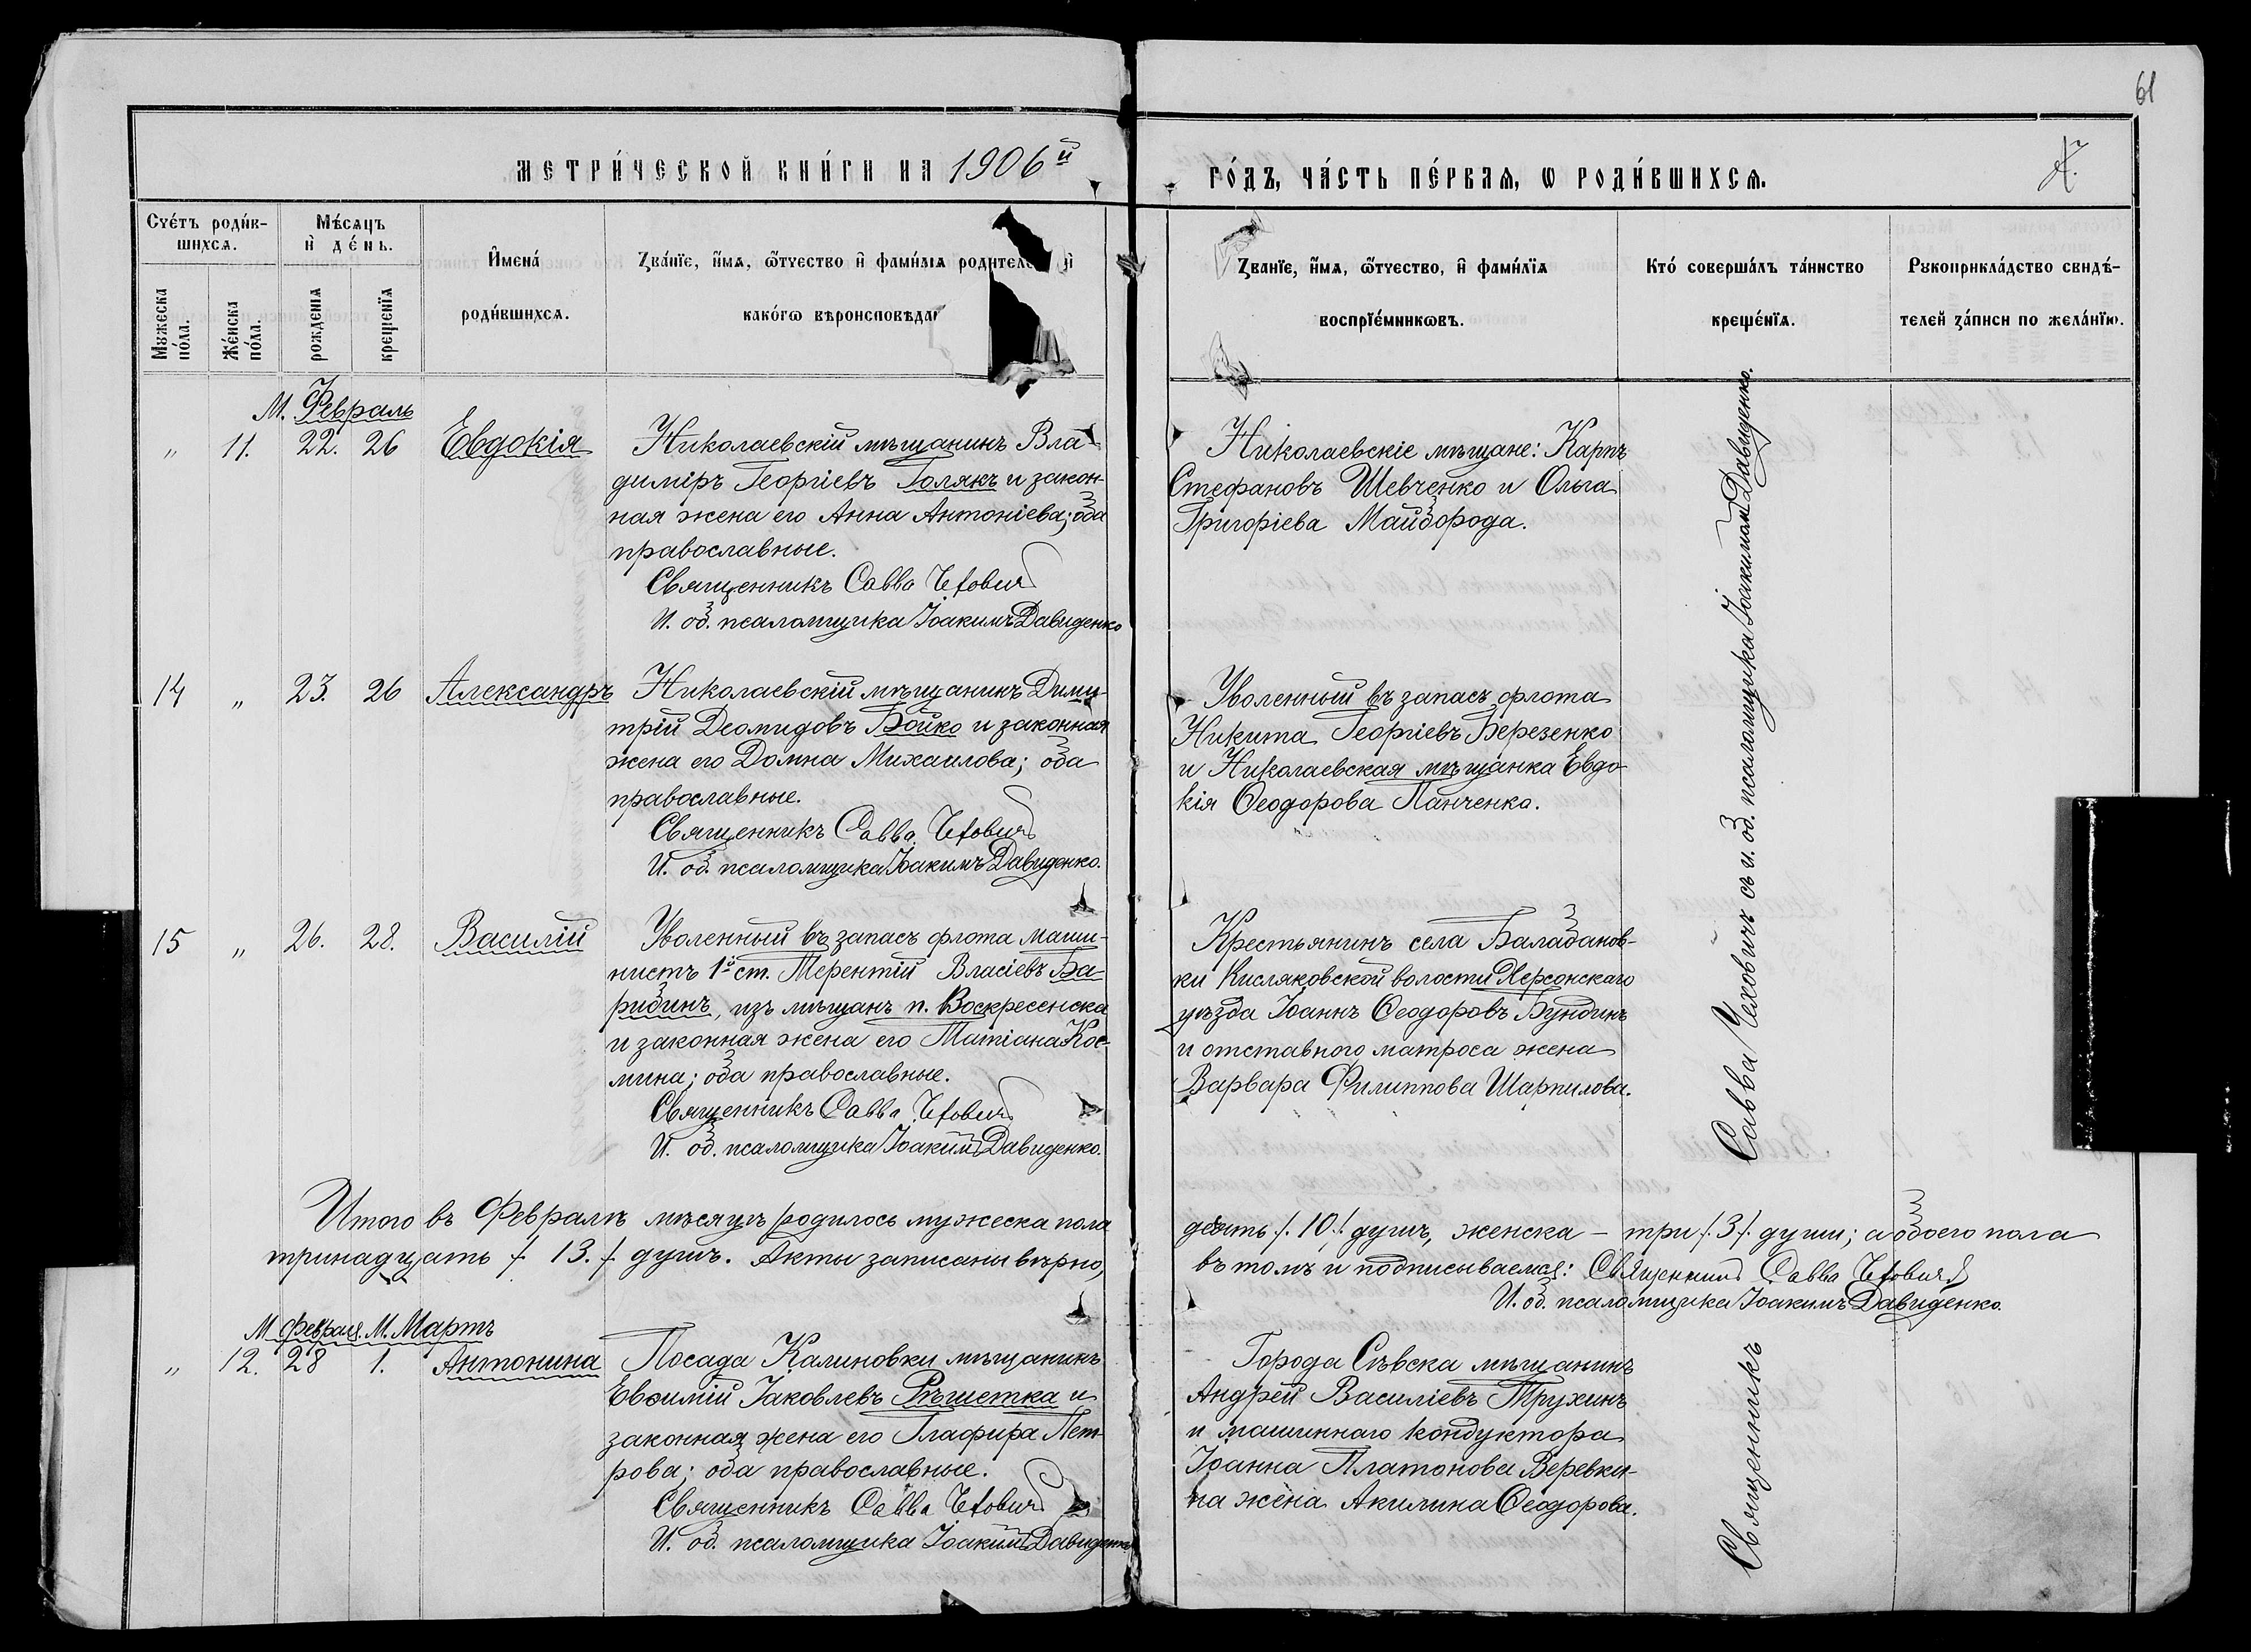 61
МЕТРИ́ЧЕСКОЙ КНИ́ГИ НА 1906й
ГО́ДЪ, ЧА́СТЬ ПЕ́РВАѦ, Ѡ РОДИ́ВШИХСѦ.
Сче́тъ роди́в-
шихсѧ.
Мꙋжеска по́ла.
Же́нска по́ла.
Мѣ́сѧцъ
и҆ де́нь.
рожденіѧ
креще́нїѧ
И҆мена́
роди́вшихсѧ.
Зва́нїе, и҆́мѧ, ѻ҆́тчество и҆ фамилїѧ родителе и҆
како́гѡ вѣроисповѣда
Зва́нїе, и҆́мѧ, ѻ҆́тчество, и҆ фами́лїѧ
воспрїе́мникѡвъ.
Кто́ соверша́лъ та́инство
креще́нїѧ.
Рꙋкоприкла́дство свидѣ́-
телей за́писи по жела́нїю.
М. Февраль
„ 11. 22. 26 Евдокія
Николаевскій мѣщанинъ Вла-
диміръ Георгіевъ Голякъ и закон-
ная жена его Анна Антоніева; оба
православные.
Священникъ Савва Чеховичъ
И. об. псаломщика Іоакимъ Давиденко
Николаевскіе мѣщане: Карпъ
Стефановъ Шевченко и Ольга
Григоріева Майборода.
14 „ 23. 26 Александръ
Николаевскій мѣщанинъ Дими-
трій Деомидовъ Бойко и законная
жена его Домна Михаилова; оба
православные.
Священникъ Савва Чеховичъ
И. об. псаломщика Іоакимъ Давиденко.
Уволенный въ запасъ флота
Никита Георгіевъ Березенко
и Николаевская мѣщанка Евдо-
кія Ѳеодорова Панченко.
15 „ 26. 28. Василій
Уволенный въ запасъ флота маши-
нистъ 1й ст. Терентій Власіевъ Ба-
рибинъ, изъ мѣщанъ п. Воскресенска
и законная жена его Татіана Кос-
мина; оба православные.
Священникъ Савва Чеховичъ
И. об. псаломщика Іоакимъ Давиденко.
Крестьянинъ села Балабанов-
ки Кисляковской волости Херсонскаго
уѣзда Іоаннъ Ѳеодоровъ Бундинъ
и отставного матроса жена
Варвара Филиппова Шарпилова.
Итого въ Февралѣ мѣсяцѣ родилось мужеска пола
десять /. 10. / душъ, женска – три /. 3 /. души; а обоего пола
тринадцать /. 13. /. душъ. Акты записаны вѣрно,
въ томъ и подписываемся: Священникъ Савва Чеховичъ
И. об. псаломщика Іоакимъ Давиденко.
М. Февраля. М. Мартъ
„ 12. 28 1. Антонина
Посада Калиновки мѣщанинъ
Евѳимій Іаковлевъ Рѣшетка и
законная жена его Глафира Пет-
рова; оба православные.
Священникъ Савва Чеховичъ
И. об. псаломщика Іоакимъ Давиденко
Города Сѣвска мѣщанинъ
Андрей Василіевъ Трухинъ
и машиннаго кондуктора
Іоанна Платонова Веревки-
на жена Акилина Ѳеодорова.
Священникъ Савва Чеховичъ съ и. об. псаломщика Іоакимомъ Давиденко.